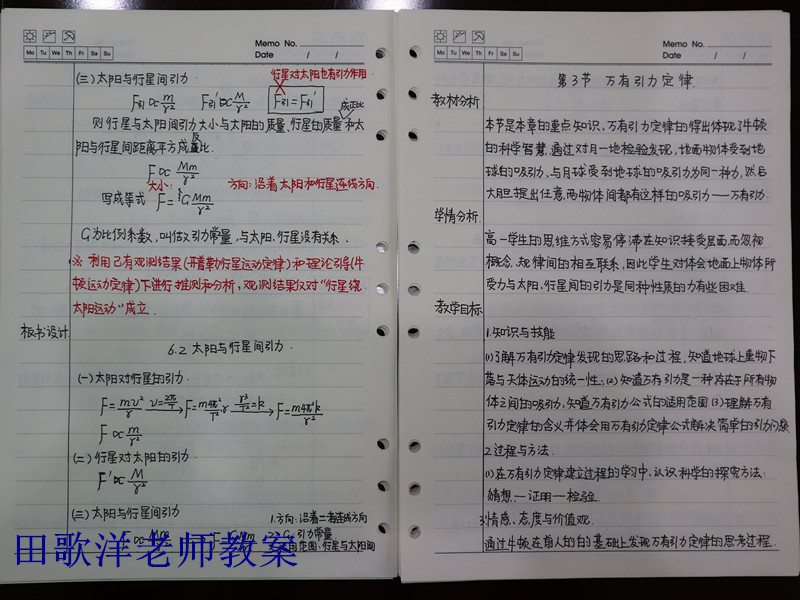 Mo Tu We Th Fr Sa Su
Memo No.
Date / /
(三)太阳与行星间引力
行星对太阳也有引力作用
F引∝m/r² F引'∝M/r² F引=F引'
成正比
则行星与太阳间引力大小与太阳的质量、行星的质量和太
阳与行星间距离平方成反比.
F∝Mm/r²
大小: 方向:沿着太阳和行星连线方向.
写成等式 F=GMm/r²
G为比例系数,叫做万引力常量,与太阳、行星没有关系、
※ 利用已有观测结果(开普勒行星运动定律)和理论引导(牛
顿运动定律)下进行推测和分析,观测结果仅对"行星绕
太阳运动"成立.
板书设计
6.2 太阳与行星间引力.
(一)太阳对行星的引力.
F=mv²/r v=2πr/T → F=m4π²/T²·r r³/T²=k → F=m4π²k/r²
F∝m/r²
(二)行星对太阳的引力.
F'∝M/r²
(三)太阳与行星间引力
1.方向:沿着二者连线方向
引力常量
范围:行星与太阳间
田歌洋老师教案
Mo Tu We Th Fr Sa Su
Memo No.
Date / /
第3节 万有引力定律.
教材分析
本节是本章的重点知识,万有引力定律的得出体现了牛顿
的科学智慧.通过对月一地检验发现,地面物体受到地
球的吸引力,与月球受到地球的吸引力为同一种力,然后
大胆提出任意两物体间都有这样的吸引力——万有引力.
学情分析
高一学生的思维方式容易停滞在知识接受层面,而忽视
概念、规律间的相互联系,因此学生对体会地面上物体所
受力与太阳、行星间的引力是同种性质的力有些困难.
教学目标
1.知识与技能
(1)了解万有引力定律发现的思路和过程,知道地球上重物下
落与天体运动的统一性;(2)知道万有引力是一种存在于所有物
体之间的吸引力,知道万有引力公式的适用范围(3)理解万有
引力定律的含义并体会用万有引力定律公式解决简单的引力问题
2.过程与方法.
(1)在万有引力定律建立过程的学习中,认识科学的探究方法:
猜想—证明—检验.
3.情感、态度与价值观.
通过牛顿在前人的的基础上发现万有引力定律的思考过程.